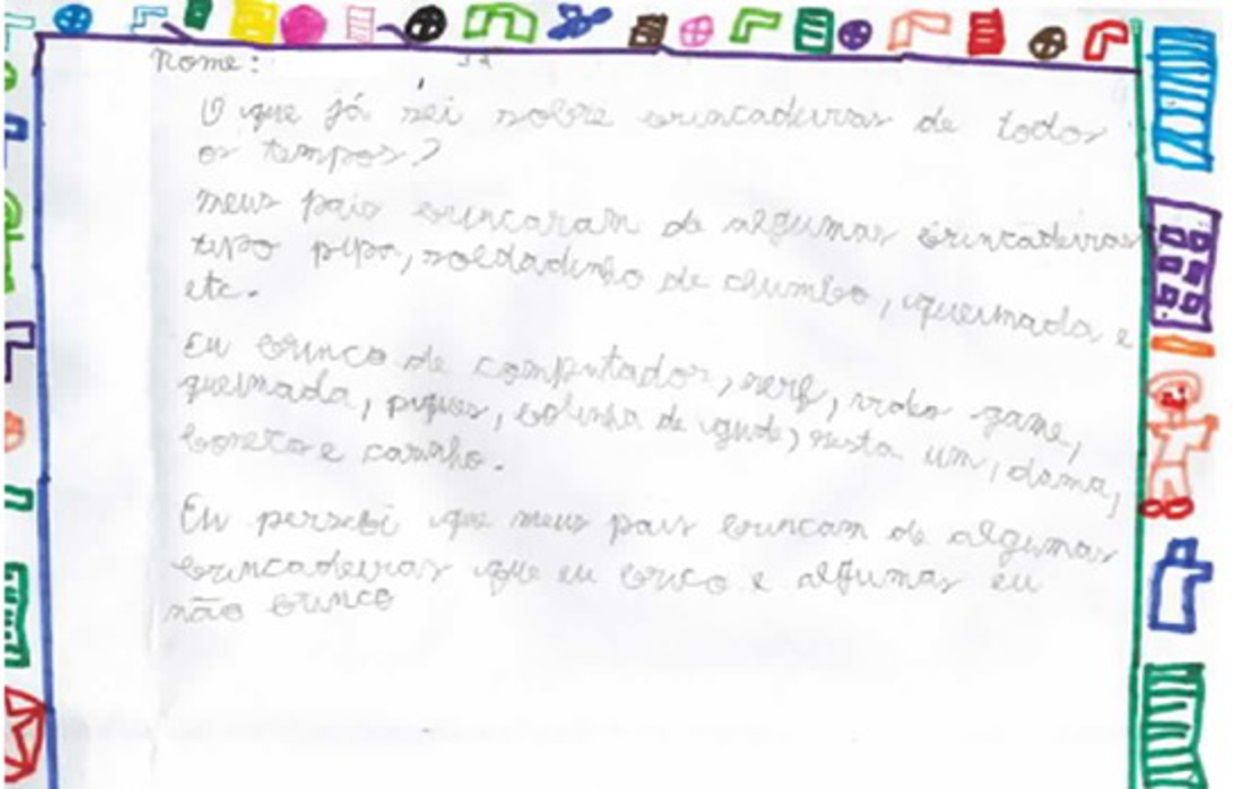 Nome:
O que já sei sobre brincadeiras de todos
os tempos?
Meus pais brincaram de algumas brincadeiras
tipo pipa, soldadinho de chumbo, queimada e
etc.
Eu brinco de computador, nerf, video game,
queimada, piques, bolinha de gude, resta um, dama,
boneco e carrinho.
Eu persebi que meus pais brincam de algumas
brincadeiras que eu brico e algumas eu
não brinco